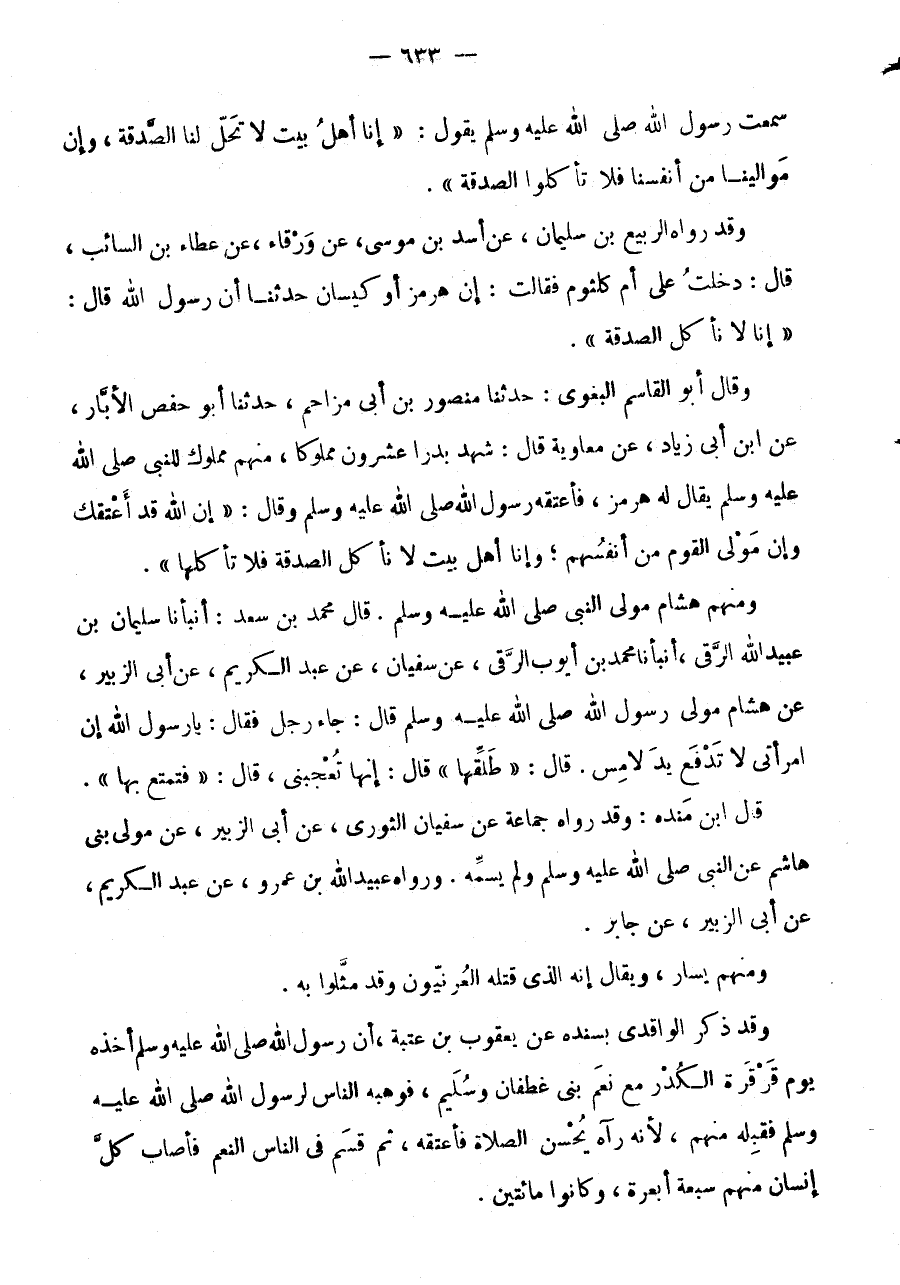 — ٦٣٣ —
سمعت رسول الله صلى الله عليه وسلم يقول : « إنا أهلُ بيت لا تحَلّ لنا الصَّدقة ، وإن
مَوالينا من أنفسنا فلا تأكلوا الصدقة » .
وقد رواه الربيع بن سليمان ، عن أسد بن موسى، عن وَرْقاء ،عن عطاء بن السائب ،
قال : دخلتُ على أم كلثوم فقالت : إن هرمز أو كيسان حدثنا أن رسول الله قال :
« إنا لا نأكل الصدقة » .
وقال أبو القاسم البغوى : حدثنا منصور بن أبى مزاحم ، حدثنا أبو حفص الأبَّار ،
عن ابن أبى زياد ، عن معاوية قال : شهد بدرا عشرون مملوكا ، منهم مملوك للنبى صلى الله
عليه وسلم يقال له هرمز ، فأعتقه رسول الله صلى الله عليه وسلم وقال : « إن الله قد أَعْتقك
وإن مَوْلى القوم من أنفُسهم ؛ وإنا أهل بيت لا نأكل الصدقة فلا تأكلها » .
ومنهم هشام مولى النبى صلى الله عليـه وسلم . قال محمد بن سعد : أنبأنا سليمان بن
عبيد الله الرَّقى ،أنبأنا محمد بن أيوب الرَّقى ، عن سفيان ، عن عبد الـكريم ، عن أبى الزبير ،
عن هشام مولى رسول الله صلى الله عليـه وسلم قال : جاء رجل فقال : يا رسول الله إن
امرأتى لا تَدْفَع يدَ لامِس . قال : « طَلِّقها » قال : إنها تُعْجبنى ، قال : « فتمتع بها » .
قال ابن مَنده : وقد رواه جماعة عن سفيان الثورى ، عن أبى الزبير ، عن مولى بنى
هاشم عن النبى صلى الله عليه وسلم ولم يسمِّه . ورواه عبيد الله بن عمرو ، عن عبد الـكريم ،
عن أبى الزبير ، عن جابر .
ومنهم يسار ، ويقال إنه الذى قتله العُرنيّون وقد مثَّلوا به .
وقد ذكر الواقدى بسنده عن يعقوب بن عتبة ،أن رسول الله صلى الله عليه وسلم أخذه
يوم قَرْقَرة الـكُدْر مع نعَم بنى غطفان وسُلَيم ، فوهبه الناس لرسول الله صلى الله عليـه
وسلم فقبِله منهم ، لأنه رآه يُحْسن الصلاة فأعتقه ، ثم قسَم فى الناس النعم فأصاب كلَّ
إنسان منهم سبعة أبعرة ، وكانوا مائتين .